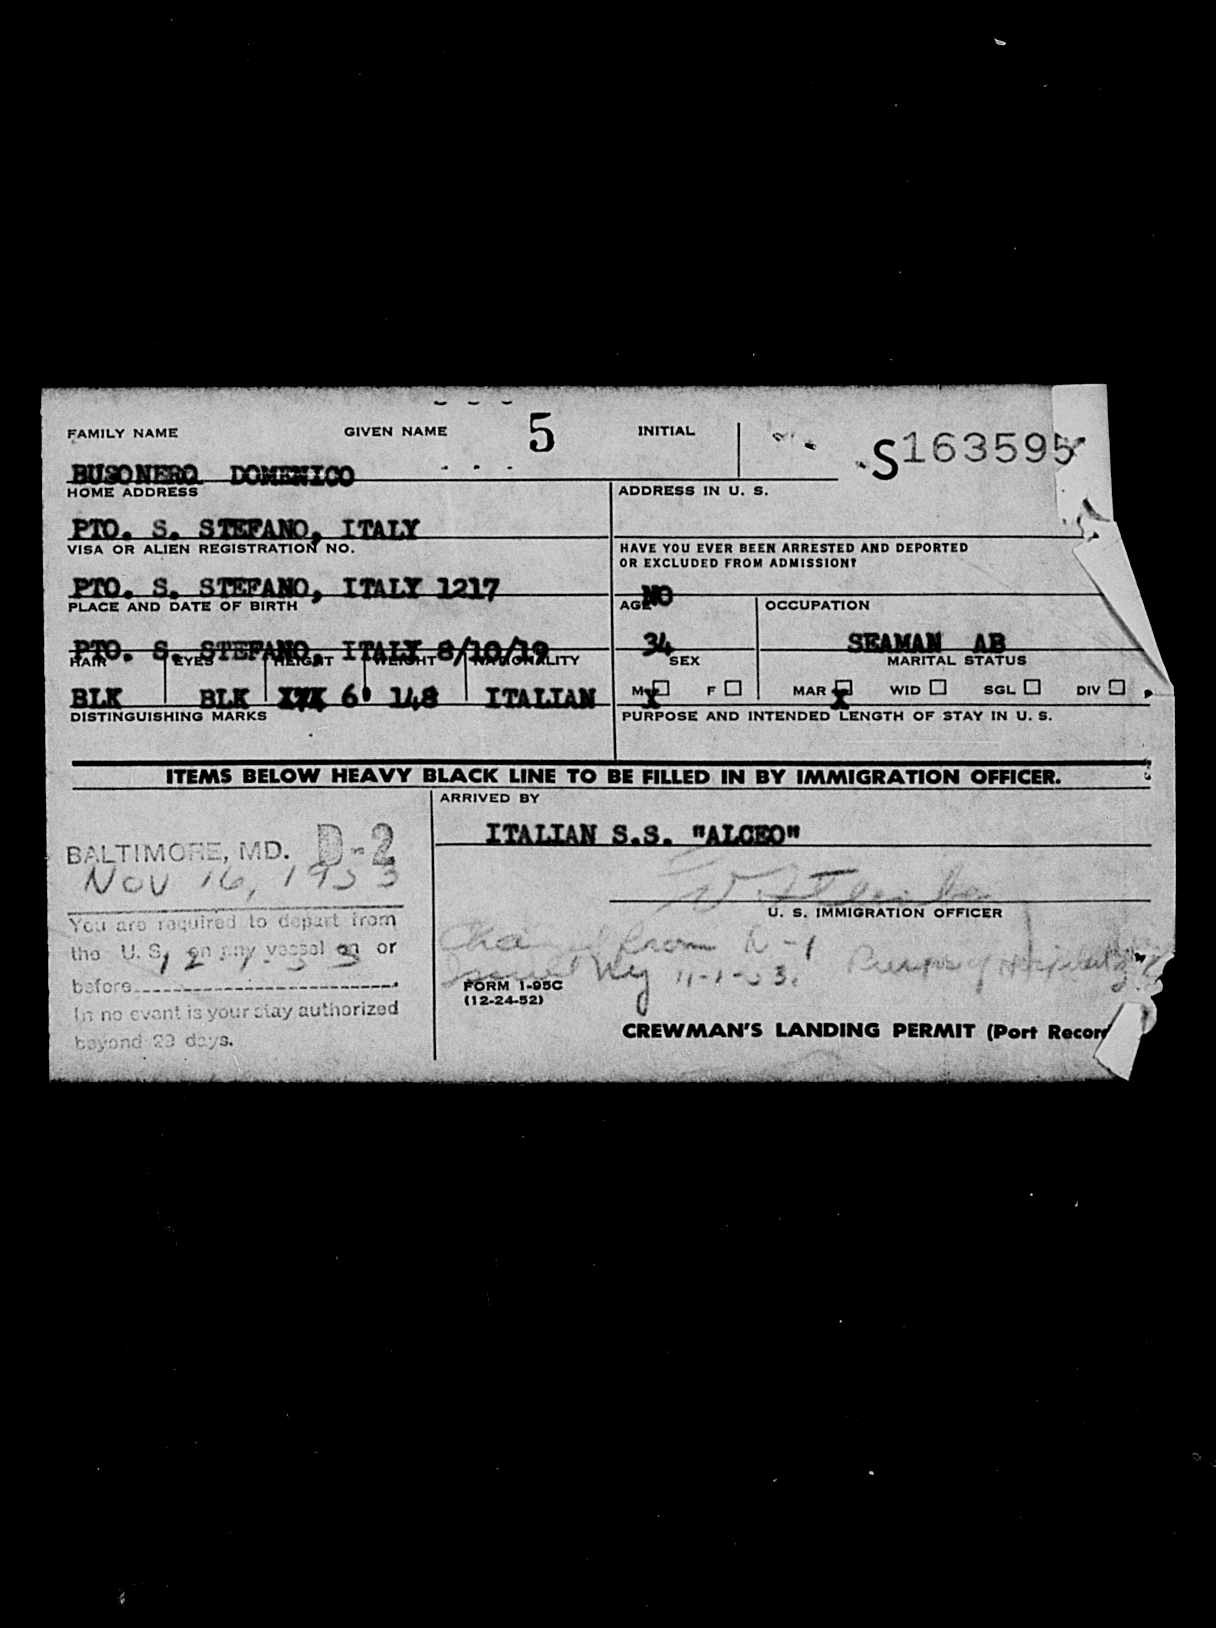 FAMILY NAME GIVEN NAME 5 INITIAL
S163595
BUSONERO DOMENICO
HOME ADDRESS ADDRESS IN U. S.
PTO. S. STEFANO, ITALY
VISA OR ALIEN REGISTRATION NO. HAVE YOU EVER BEEN ARRESTED AND DEPORTED
OR EXCLUDED FROM ADMISSION?
PTO. S. STEFANO, ITALY 1217 NO
PLACE AND DATE OF BIRTH AGE OCCUPATION
PTO. S. STEFANO, ITALY 8/10/19 34 SEAMAN AB
HAIR EYES HEIGHT WEIGHT NATIONALITY SEX MARITAL STATUS
BLK BLK 6' 148 ITALIAN M X F MAR X WID SGL DIV
DISTINGUISHING MARKS PURPOSE AND INTENDED LENGTH OF STAY IN U. S.
ITEMS BELOW HEAVY BLACK LINE TO BE FILLED IN BY IMMIGRATION OFFICER.
ARRIVED BY
ITALIAN S.S. "ALCEO"
BALTIMORE, MD. D-2
Nov 16, 1953
U. S. IMMIGRATION OFFICER
You are required to depart from
the U. S. on any vessel on or
before
In no event is your stay authorized
beyond 29 days.
Changed from D-1
NY 11-1-53.
FORM I-95C
(12-24-52)
CREWMAN'S LANDING PERMIT (Port Record